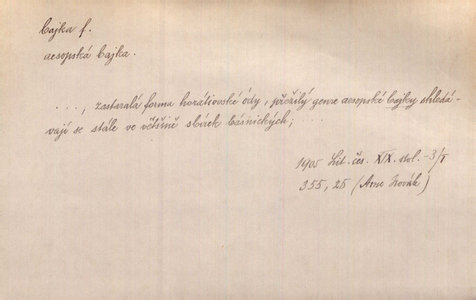 bajka f.
aesopská bajka.
..., zastaralá forma horátiovské ódy, přežilý genre aesopské bajky shledá-
vají se stále ve většině sbírek básnických; ...
1905 Lit. čes. XIX. stol. - 3/I
355, 25 (Arne Novák)